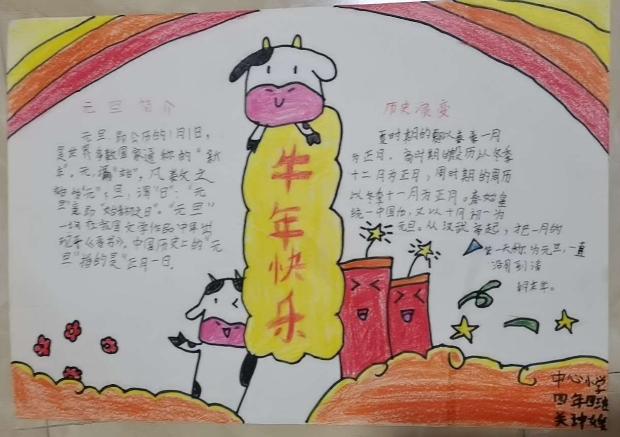 元旦简介
元旦,即公历的1月1日,
是世界多数国家通称的"新
年"。元,谓"始",凡数之
始称"元";旦,谓"日";"元
旦"意即"始的日"。"元旦"
一词在我国文学作品中早出
现于《晋书》。中国历史上的"元
旦"指的是"正月一日。
牛年快乐
历史演变
夏时期的夏以春一月
为正月,商时期的殷历以冬季
十二月为正月,周时期的周历
以冬季十一月为正月。秦始皇
统一中国后,又以十月初一为
元旦。从汉武帝起,把一月的
第一天称为元旦,一直
沿用到清
朝末年。
中心小学
四年四班